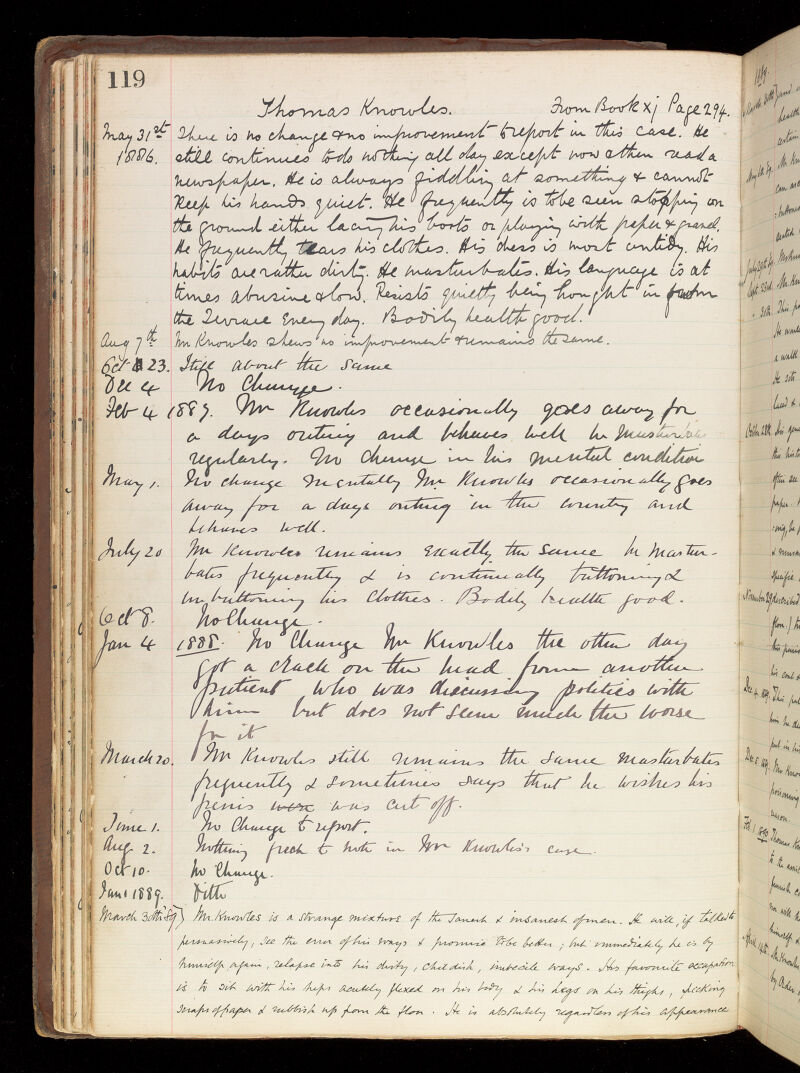 119
Thomas Knowles. From Book xj Page 294.
May 31st There is no change & no improvement to report in this case. He
1886. still continues to do nothing all day except now & then read a
newspaper. He is always fiddling at something & cannot
keep his hands quiet. He frequently is to be seen stooping on
the ground either lacing his boots or playing with paper & gravel.
He frequently tears his clothes. His dress is most untidy. His
habits are rather dirty. He masturbates. His language is at
times abusive & low. Resists quietly being brought in from
the Terrace every day. Bodily health good.
Aug 7th Mr Knowles shews no improvement & remains the same.
Oct 23. Still about the same
Dec 4 No Change.
Feb 4 1887. Mr Knowles occasionally goes away for
a days outing and behaves well he masturbates
regularly. No change in his mental condition
May 1. No change mentally Mr Knowles occasionally goes
away for a days outing in the country and
behaves well.
July 20 Mr Knowles remains exactly the same he mastur-
bates frequently & is continually buttoning &
unbuttoning his clothes. Bodily health good.
Oct 8. No Change.
Jan 4 1888. No Change Mr Knowles the other day
got a crack on the head from another
patient who was discussing politics with
him but does not seem much the worse
for it
March 20. Mr Knowles still remains the same masturbates
frequently & sometimes says that he wishes his
penis were was cut off.
June 1. No Change to report.
Aug. 2. Nothing fresh to note in Mr Knowles's case.
Oct 10. No Change.
Jan 1 1889. Ditto
March 30th '89) Mr. Knowles is a strange mixture of the sanest & insanest of men. He will, if talked to
persuasively, see the error of his ways & promise to be better; but immediately he is by
himself again, relapse into his dirty, childish, imbecile ways. His favourite occupation
is to sit with his hips acutely flexed on his body & his legs on his thighs, picking
scraps of paper & rubbish up from the floor. He is absolutely regardless of his appearance